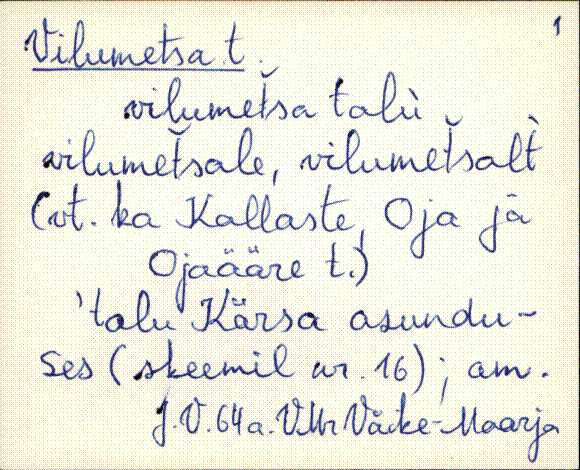 1
Vilumetsa t.
vilumeťsa talù
vilumeťsale, vilumeťsalt̀
(vt. ka Kallaste, Oja ja
Ojaääre t.)
'talu Kärsa asundu-
ses (skeemil nr. 16); am.
J.V. 64 a. V.Mr Väike-Maarja